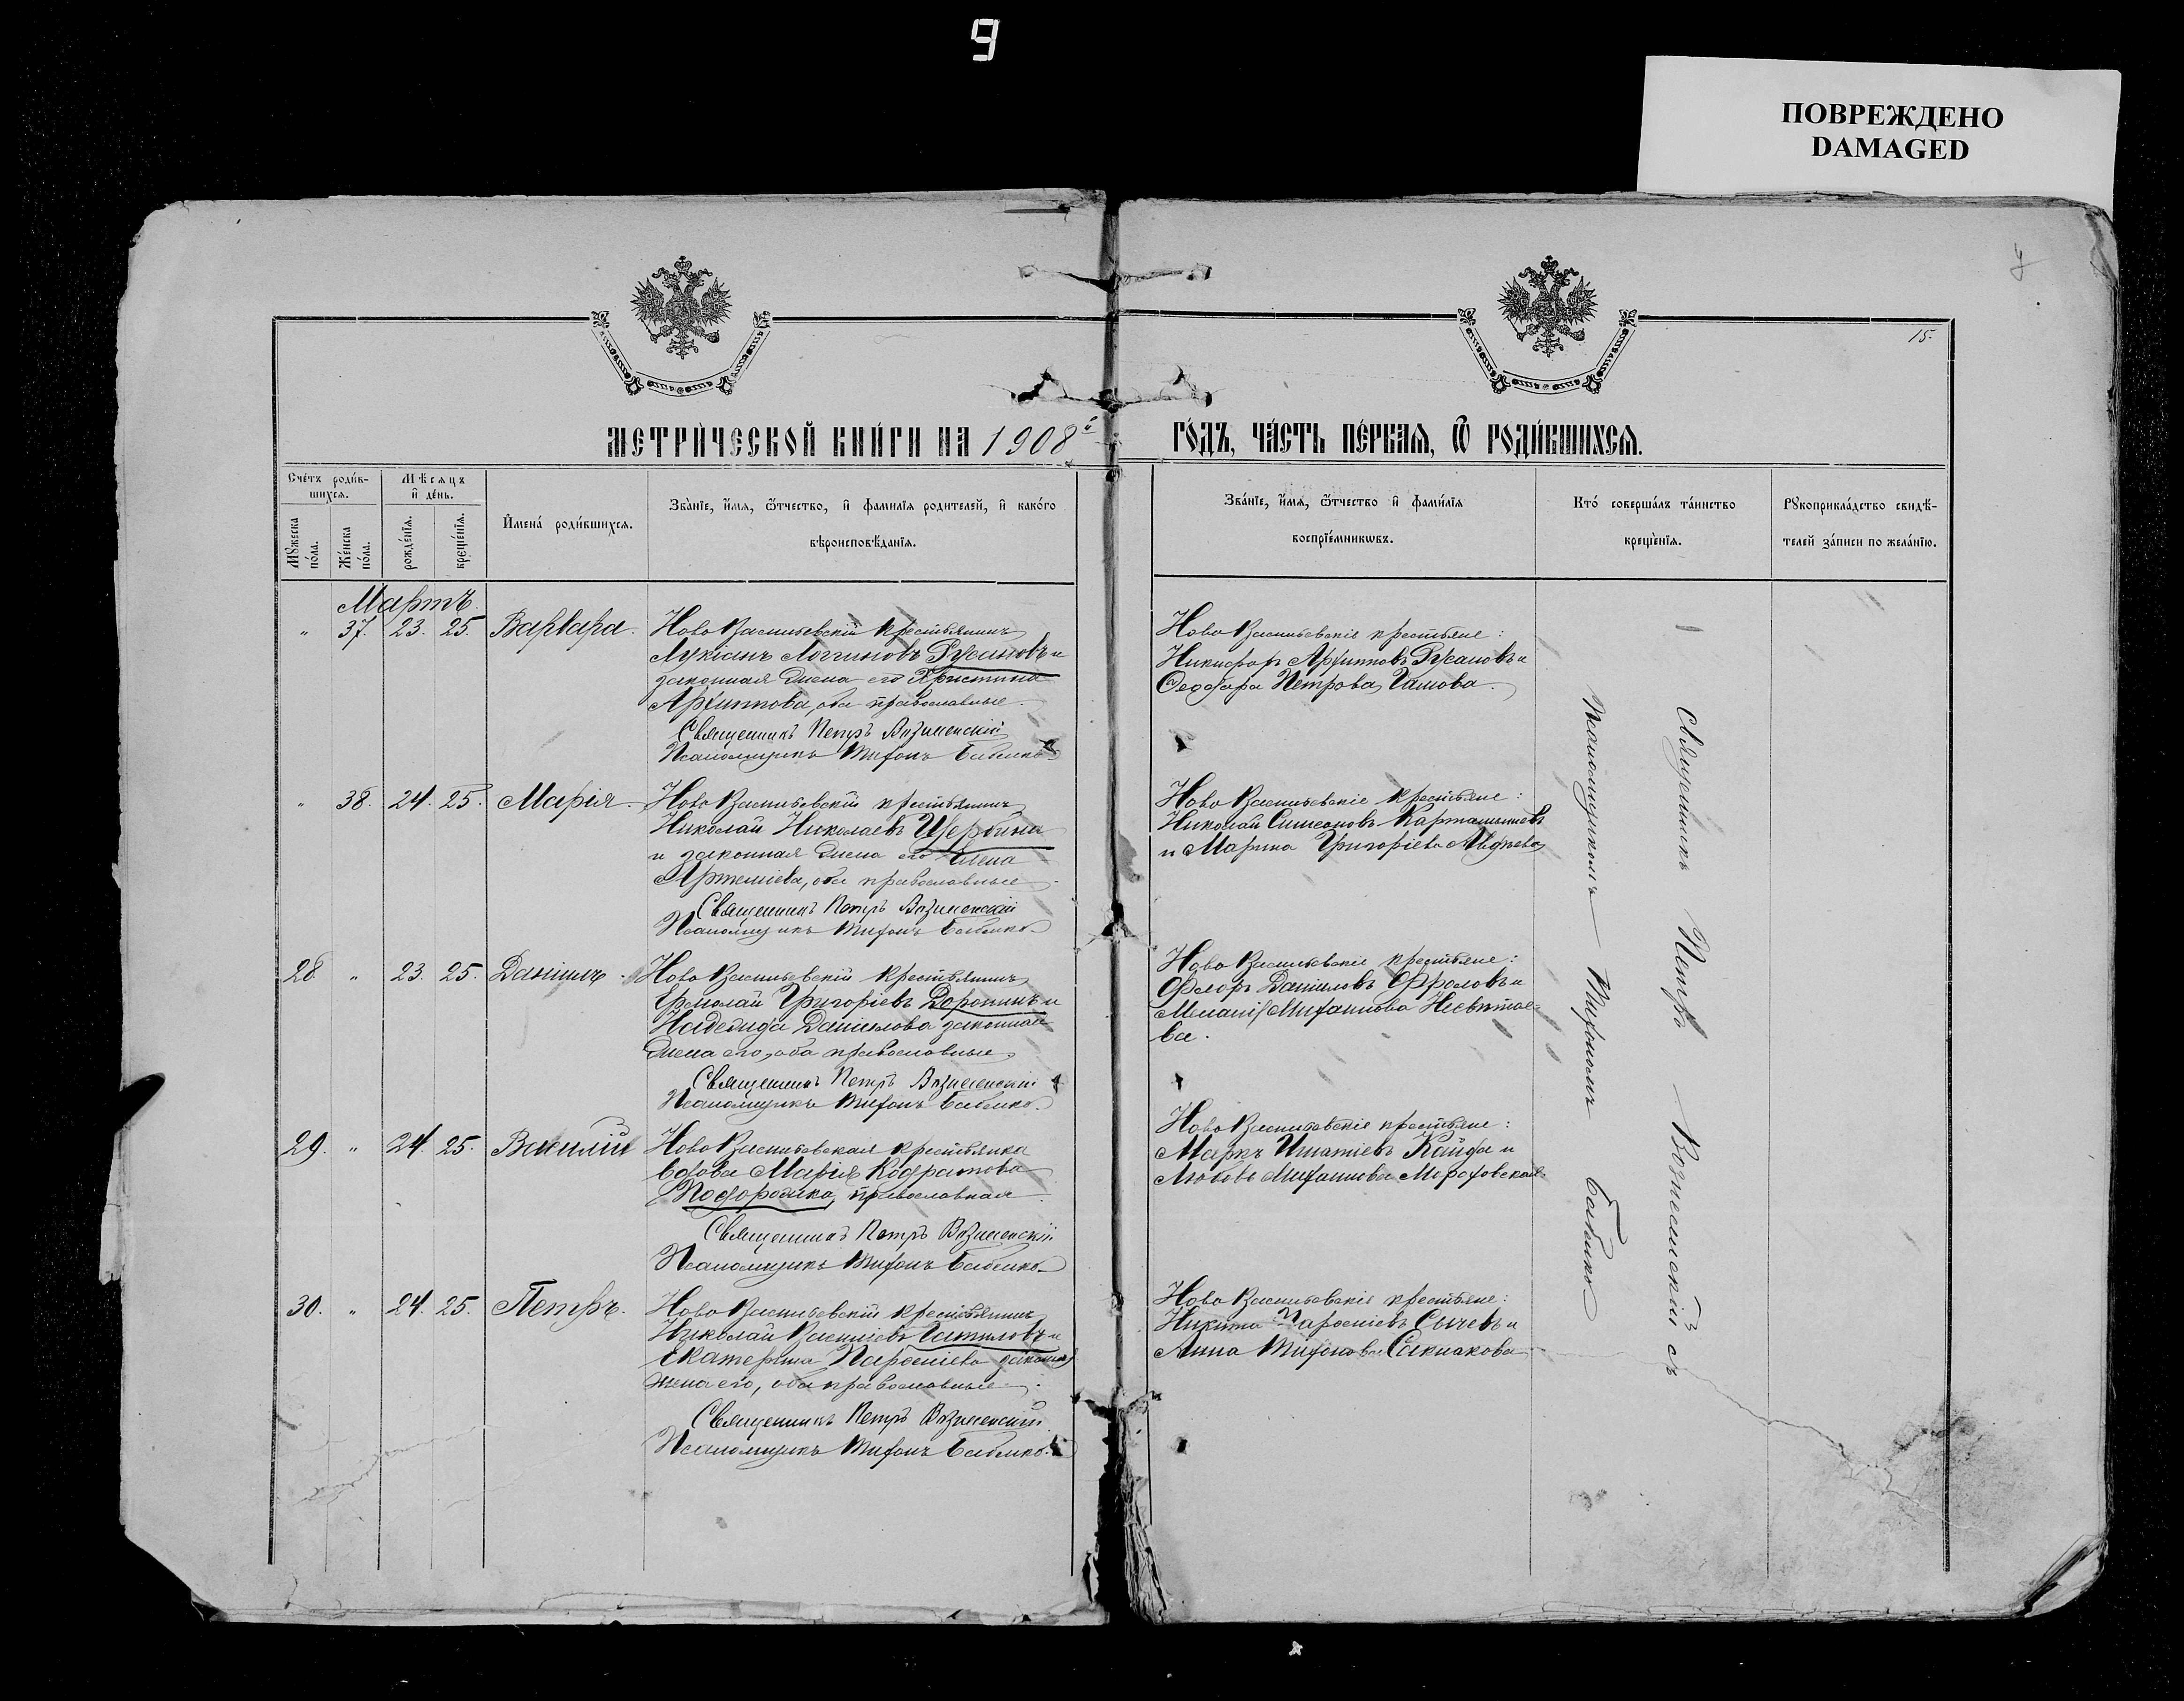 9
ПОВРЕЖДЕНО
DAMAGED
15.
МЕТРИ́ЧЕСКОЙ КНИ́ГИ НА 1908й ГО́ДЪ, ЧА́СТЬ ПЕ́РВАЯ, Ѿ РОДИ́ВШИХСЯ.
Сче́тъ роди́в-
шихся.
Мѣсяцъ
и҆ де́нь.
Мꙋжеска
по́ла.
Же́нска
по́ла.
рожде́нїя.
креще́нїя.
И҆мена́ роди́вшихся.
Зва́нїе, и҆мя, ѻ҆́тчество, и҆ фами́лїя родителей, и҆ како́го
вѣроисповѣ́данїя.
Зва́нїе, и҆́мя, ѻ҆́тчество и҆ фами́лїя
воспрїе́мникѡвъ.
Кто́ соверша́лъ та́инство
креще́нїя.
Рꙋкоприкла́дство свидѣ́-
телей за́писи по жела́нїю.
Мартъ.
" 37. 23. 25. Варвара.
Ново Васильевскій крестьянинъ
Лукіанъ Логгиновъ Русановъ и
законная жена его Христина
Архиппова, оба православные.
Священникъ Петръ Вознесенскій
Псаломщикъ Тихонъ Бабенко
Ново Васильевскіе крестьяне:
Никифоръ Архипповъ Русановъ и
Феодора Петрова Гамова.
" 38. 24. 25. Марія.
Ново Васильевскій крестьянинъ
Николай Николаевъ Щербина
и законная жена его Елена
Артеміева, оба православные.
Священникъ Петръ Вознесенскій
Псаломщикъ Тихонъ Бабенко
Ново Васильевскіе крестьяне:
Николай Симеоновъ
и Марина Григоріева Авдѣева
28 " 23. 25. Даніилъ.
Ново Васильевскій крестьянинъ
Ермолай Григоріевъ Доронинъ и
Надежда Даніилова законная
жена его, оба православные.
Священникъ Петръ Вознесенскій
Псаломщикъ Тихонъ Бабенко
Ново Васильевскіе крестьяне:
Флоръ Даніиловъ Фроловъ и
Меланія Михаилова
ва.
29. " 24. 25. Василій
Ново Васильевская крестьянка
вдова Марія Кодратова
православная.
Священникъ Петръ Вознесенскій
Псаломщикъ Тихонъ Бабенко
Ново Васильевскіе крестьяне:
Маркъ Игнатіевъ Кайда и
Любовь Михаилова
30. " 24. 25. Петръ.
Ново Васильевскій крестьянинъ
Николай Василіевъ Гатиловъ и
Екатерина Парѳеніева законная
жена его, оба православные.
Священникъ Петръ Вознесенскій
Псаломщикъ Тихонъ Бабенко
Ново Васильевскіе крестьяне:
Никита Парѳеніевъ Сычевъ и
Анна Тихонова
Священникъ Петръ Вознесенскій съ
Псаломщикомъ Тихономъ Бабенко